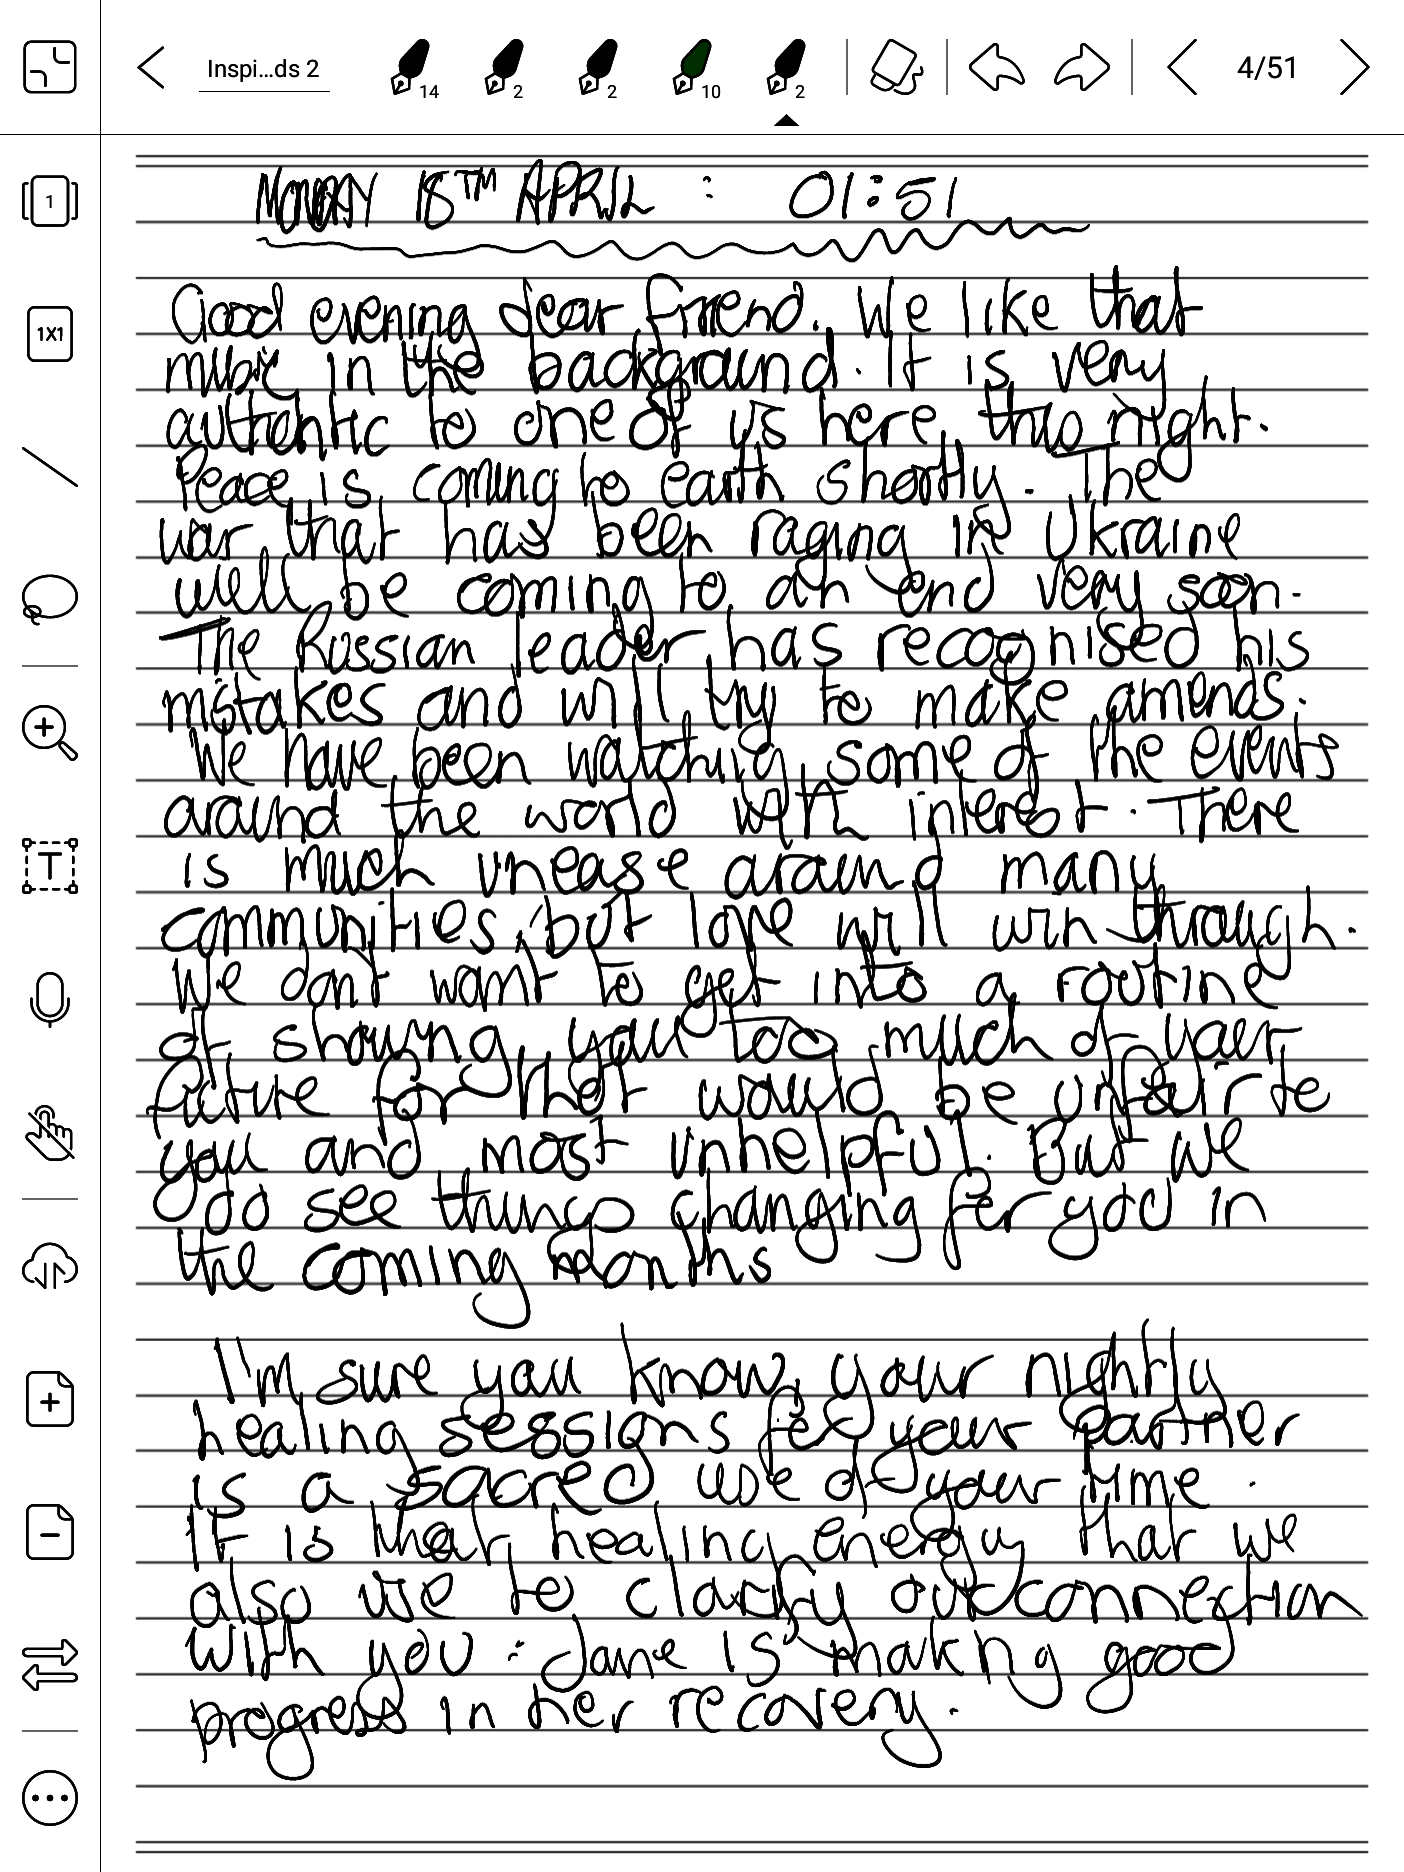 Inspi...ds 2
14
2
2
10
2
4/51
1
1X1
T
MONDAY 18TH APRIL : 01:51
Good evening dear friend. We like that
music in the background. It is very
authentic to one of us here this night.
Peace is coming to earth shortly. The
war that has been raging in Ukraine
will be coming to an end very soon.
The Russian leader has recognised his
mistakes and will try to make amends.
We have been watching some of the events
around the world with interest. There
is much unease around many
communities, but love will win through.
We don't want to get into a routine
of showing you too much of your
future for that would be unfair to
you and most unhelpful. But we
do see things changing for you in
the coming months
I'm sure you know, your nightly
healing sessions for your partner
is a sacred use of your time.
It is that healing energy that we
also use to clarify our connection
with you : Jane is making good
progress in her recovery.